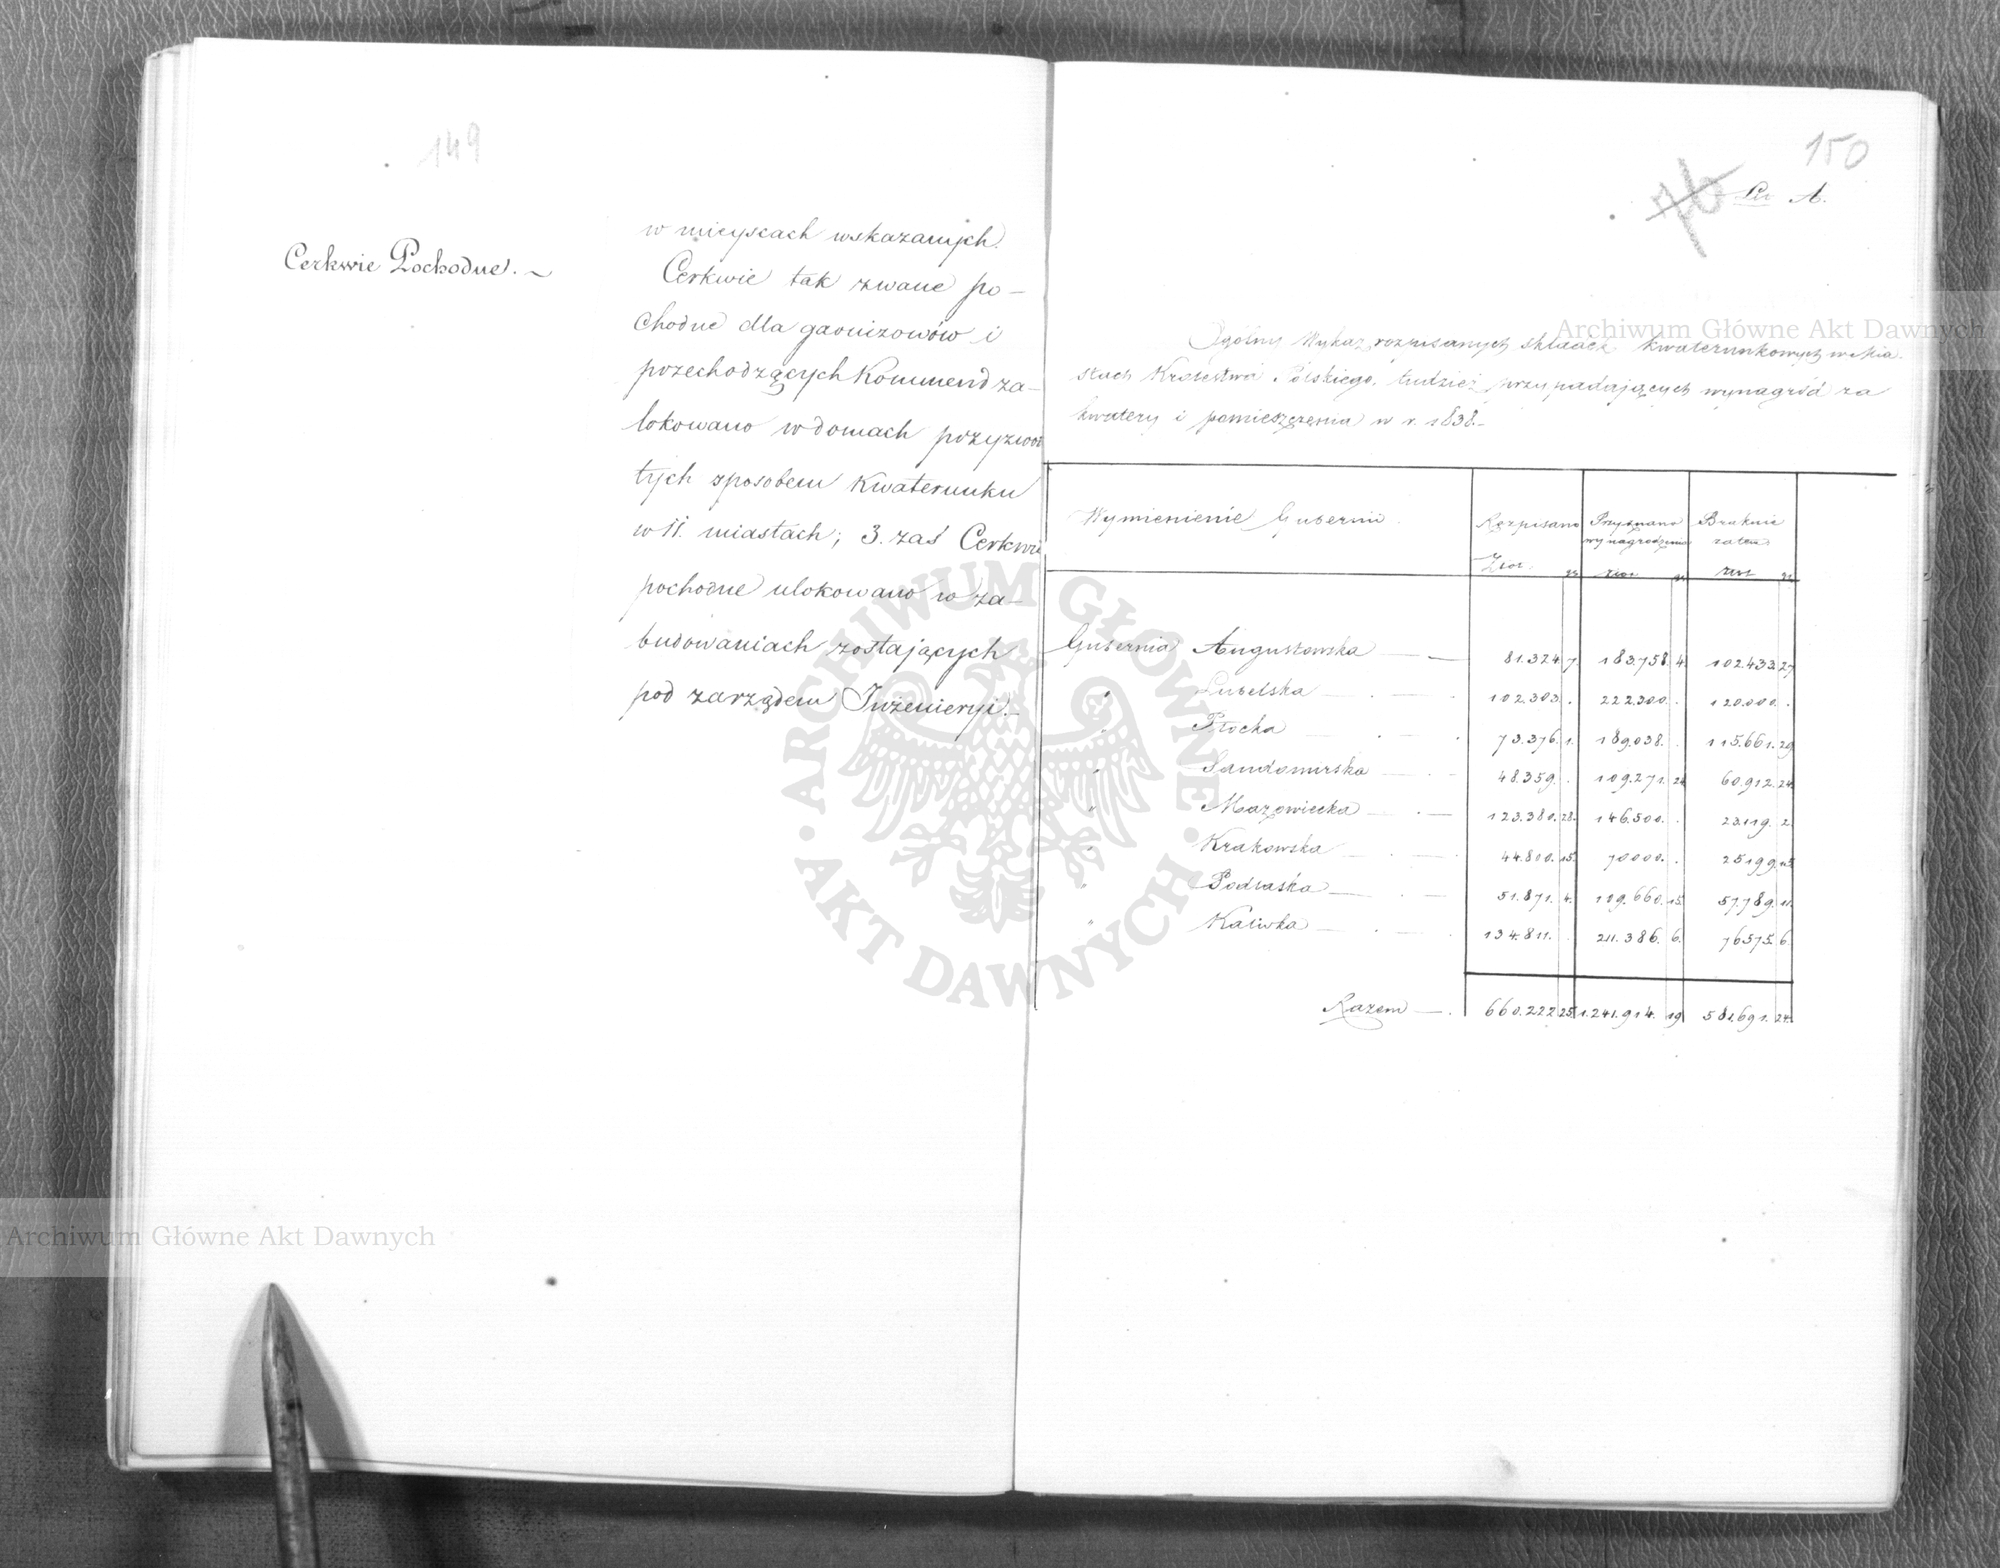 149
Cerkwie Pochodne. ~
w mieyscach wskazanych.
Cerkwie tak zwane po-
chodne dla garnizonów i
przechodzących Kommend za-
lokowano w domach przyzwoi
tych sposobem Kwaterunku
w 11. miastach; 3. zaś Cerkwie
pochodne ulokowano w za-
budowaniach zostających
pod zarządem Inżenieryi.-
150
76
Lit A.
Ogólny Wykaz rozpisanych składek kwaterunkowych w Mia-
stach Królestwa Polskiego, tudzież przypadających wynagród za
kwatery i pomieszczenia w r. 1838.-
Wymienienie Gubernii. Rozpisano Przyznano wynagrodzenia Braknie zatem.
Złot. gr złot gr złot gr
Gubernia Augustowska 81.324. 7. 183.758. 4. 102.433. 27
" Lubelska 102.303. . 222.300. . 120.000. .
" Płocka 73.376. 1. 189.038. . 115.661. 29
" Sandomirska 48.359. . 109.271. 24 60.912. 24.
" Mazowiecka 123.380. 28. 146.500. . 23.119. 2.
" Krakowska 44.800. 15. 70000. . 25199. 15.
" Podlaska 51.871. 4. 109.660. 15. 57.789. 11.
" Kaliska 134.811. . 211.386. 6. 76575. 6.
Razem 660.222 25 1.241.914. 19 581.691. 24.
Archiwum Główne Akt Dawnych
Archiwum Główne Akt Dawnych
ARCHIWUM GŁÓWNE AKT DAWNYCH